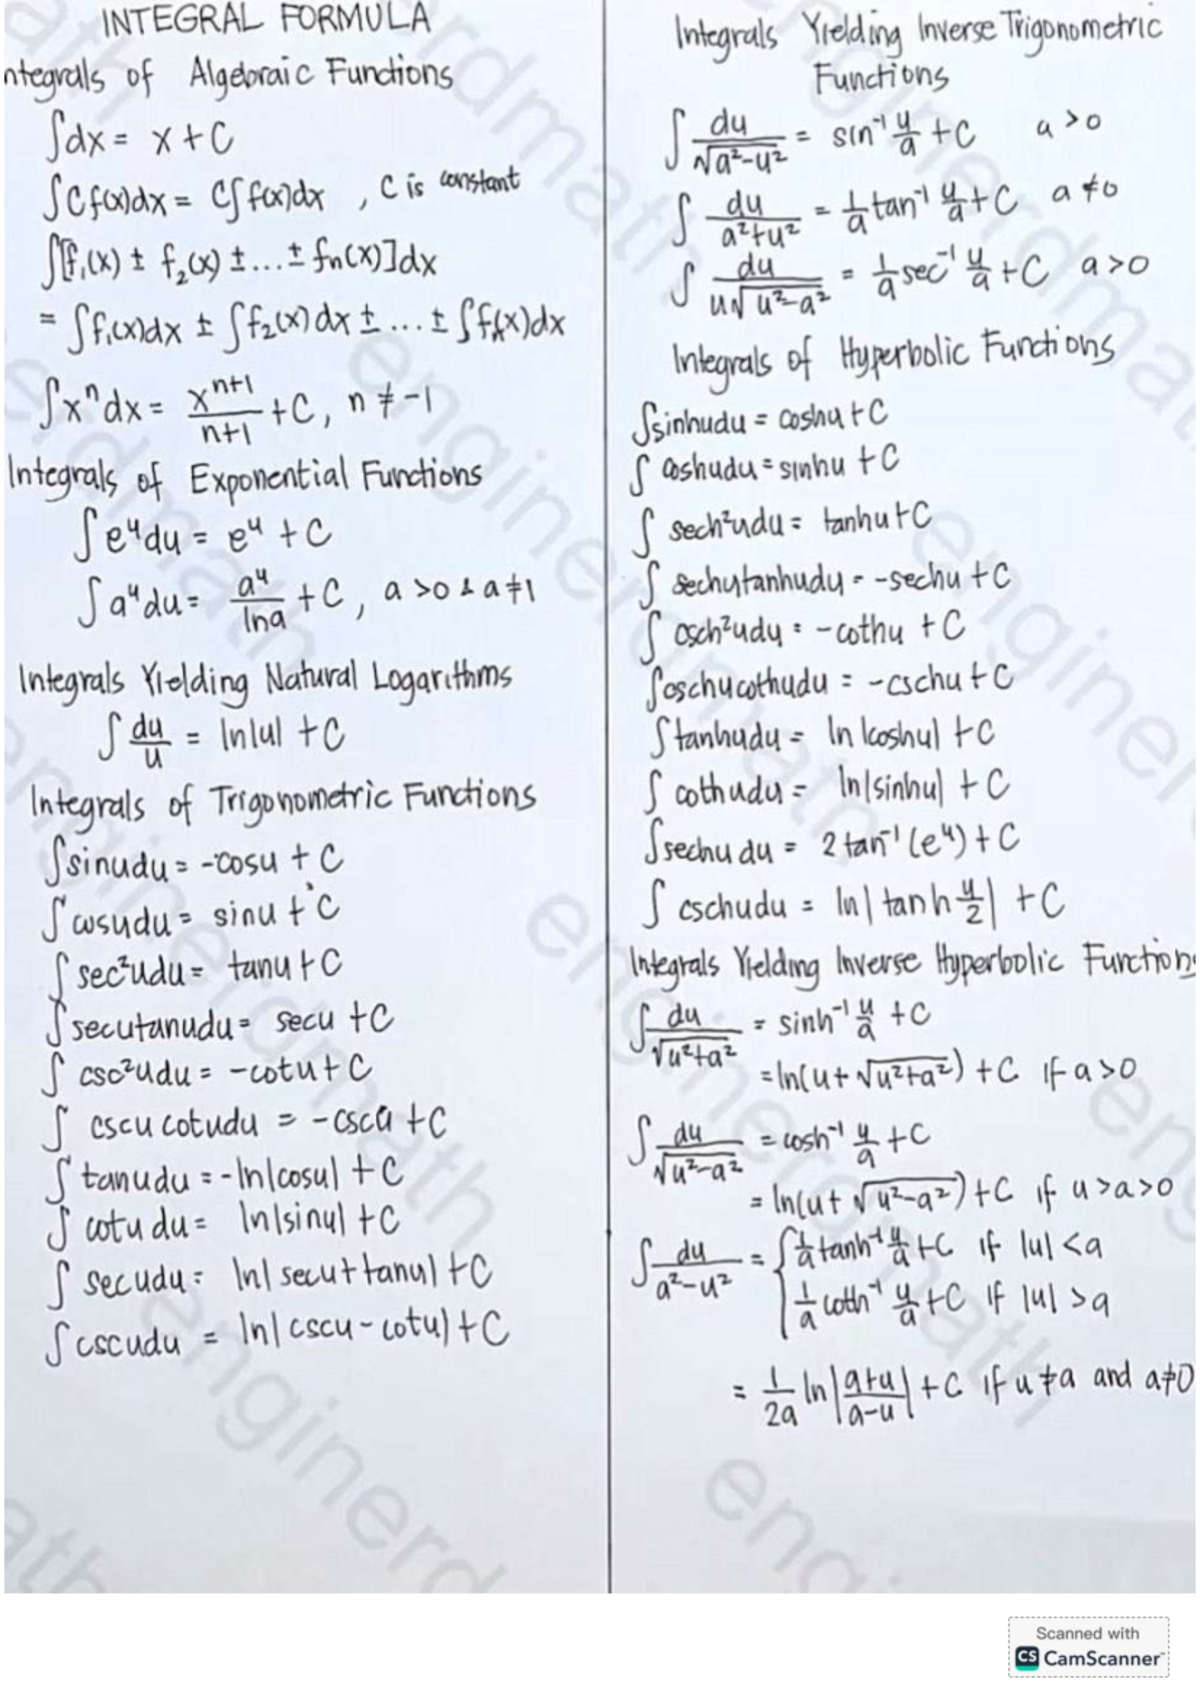 INTEGRAL FORMULA
ntegrals of Algebraic Functions
∫dx = x + C
∫Cf(x)dx = C∫f(x)dx , C is constant
∫[f₁(x) ± f₂(x) ± ... ± fn(x)]dx
= ∫f₁(x)dx ± ∫f₂(x)dx ± ... ± ∫fₙ(x)dx
∫xⁿdx = xⁿ⁺¹/n+1 + C, n ≠ -1
Integrals of Exponential Functions
∫eᵘdu = eᵘ + C
∫aᵘdu = aᵘ/lna + C, a >0 & a≠1
Integrals Yielding Natural Logarithms
∫du/u = ln|u| + C
Integrals of Trigonometric Functions
∫sinudu = -cosu + C
∫cosudu = sinu + C
∫sec²udu = tanu + C
∫secutanudu = secu + C
∫csc²udu = -cotu + C
∫cscu cotudu = -cscu + C
∫tanudu = -ln|cosu| + C
∫cotu du = ln|sinu| + C
∫secudu = ln|secu+tanu| + C
∫cscudu = ln|cscu - cotu| + C
Integrals Yielding Inverse Trigonometric
Functions
∫du/√a²-u² = sin⁻¹ u/a + C a >0
∫du/a²+u² = 1/a tan⁻¹ u/a + C a ≠0
∫du/u√u²-a² = 1/a sec⁻¹ u/a + C a >0
Integrals of Hyperbolic Functions
∫sinhudu = coshu + C
∫coshudu = sinhu + C
∫sech²udu = tanhu + C
∫sechutanhudu = -sechu + C
∫csch²udu = -cothu + C
∫cschucothudu = -cschu + C
∫tanhudu = ln|coshu| + C
∫cothudu = ln|sinhu| + C
∫sechu du = 2tan⁻¹(eᵘ) + C
∫cschudu = ln|tanh u/2| + C
Integrals Yielding Inverse Hyperbolic Functions
∫du/√u²+a² = sinh⁻¹ u/a + C
= ln(u+√u²+a²) + C if a>0
∫du/√u²-a² = cosh⁻¹ u/a + C
= ln(u+√u²-a²) + C if u>a>0
∫du/a²-u² = { 1/a tanh⁻¹ u/a + C if |u| <a
1/a coth⁻¹ u/a + C if |u| >a
= 1/2a ln|a+u/a-u| + C if u≠a and a≠0
enginerdmath
Scanned with
CS CamScanner